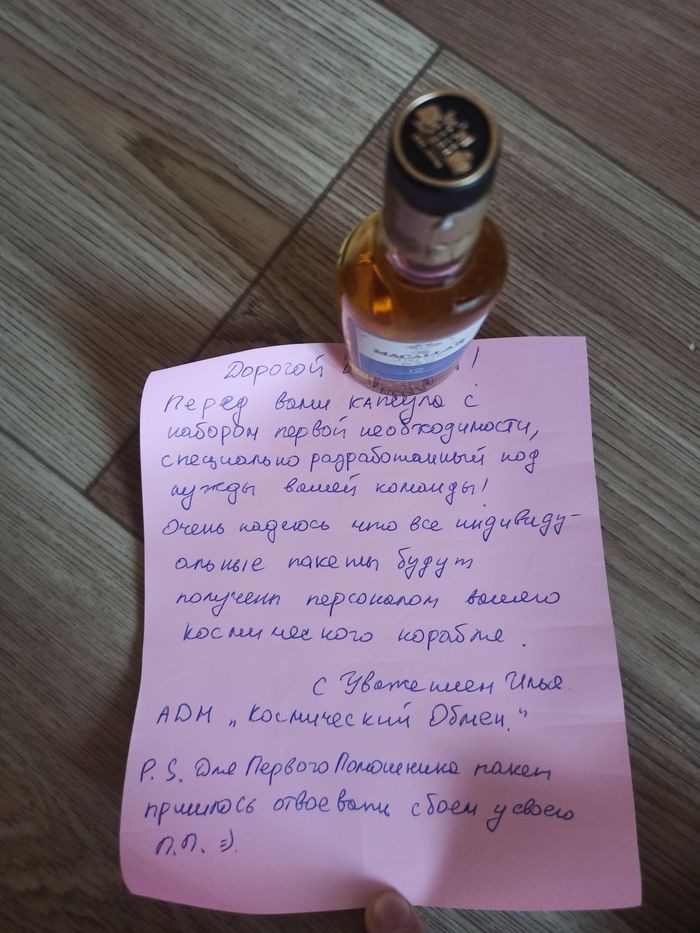 MACALLAN
12
Дорогой !
Перед вами капсула с
набором первой необходимости,
специально разработанный под
нужды вашей команды!
Очень надеюсь что все индивиду-
альные пакеты будут
получены персоналом вашего
космического корабля.
С Уважением Илья.
ADM „Космический Обмен."
P.S. Для Первого Помошника пакет
пришлось отвоевать с боем у своего
П.П. =).